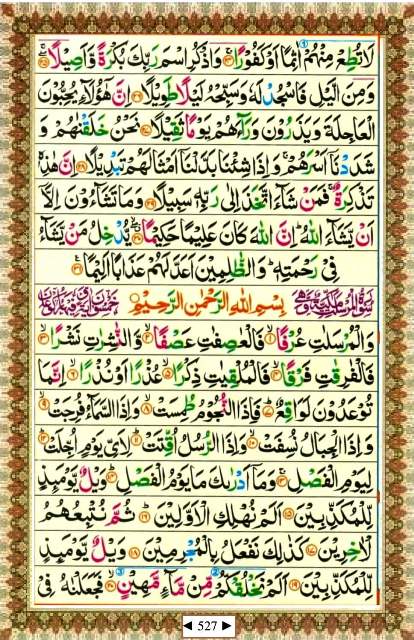 لَا تُطِعْ مِنْهُمْ اٰثِمًا اَوْ كَفُوْرًا ﴿۲۴﴾ وَاذْكُرِ اسْمَ رَبِّكَ بُكْرَةً وَّاَصِيْلًا ﴿۲۵﴾
وَمِنَ الَّيْلِ فَاسْجُدْ لَهٗ وَسَبِّحْهُ لَيْلًا طَوِيْلًا ﴿۲۶﴾ اِنَّ هٰٓؤُلَآءِ يُحِبُّوْنَ
الْعَاجِلَةَ وَيَذَرُوْنَ وَرَآءَهُمْ يَوْمًا ثَقِيْلًا ﴿۲۷﴾ نَحْنُ خَلَقْنٰهُمْ وَ
شَدَدْنَآ اَسْرَهُمْ ۚ وَاِذَا شِئْنَا بَدَّلْنَآ اَمْثَالَهُمْ تَبْدِيْلًا ﴿۲۸﴾ اِنَّ هٰذِهٖ
تَذْكِرَةٌ ۚ فَمَنْ شَآءَ اتَّخَذَ اِلٰى رَبِّهٖ سَبِيْلًا ﴿۲۹﴾ وَمَا تَشَآءُوْنَ اِلَّآ
اَنْ يَّشَآءَ اللّٰهُ ؕ اِنَّ اللّٰهَ كَانَ عَلِيْمًا حَكِيْمًا ﴿۳۰﴾ يُّدْخِلُ مَنْ يَّشَآءُ
فِيْ رَحْمَتِهٖ ؕ وَالظّٰلِمِيْنَ اَعَدَّ لَهُمْ عَذَابًا اَلِيْمًا ﴿۳۱﴾
بِسْمِ اللّٰهِ الرَّحْمٰنِ الرَّحِيْمِ
وَالْمُرْسَلٰتِ عُرْفًا ﴿۱﴾ فَالْعٰصِفٰتِ عَصْفًا ﴿۲﴾ وَّالنّٰشِرٰتِ نَشْرًا ﴿۳﴾
فَالْفٰرِقٰتِ فَرْقًا ﴿۴﴾ فَالْمُلْقِيٰتِ ذِكْرًا ﴿۵﴾ عُذْرًا اَوْ نُذْرًا ﴿۶﴾ اِنَّمَا
تُوْعَدُوْنَ لَوَاقِعٌ ﴿۷﴾ فَاِذَا النُّجُوْمُ طُمِسَتْ ﴿۸﴾ وَاِذَا السَّمَآءُ فُرِجَتْ ﴿۹﴾
وَاِذَا الْجِبَالُ نُسِفَتْ ﴿۱۰﴾ وَاِذَا الرُّسُلُ اُقِّتَتْ ﴿۱۱﴾ لِاَيِّ يَوْمٍ اُجِّلَتْ ﴿۱۲﴾
لِيَوْمِ الْفَصْلِ ﴿۱۳﴾ وَمَآ اَدْرٰىكَ مَا يَوْمُ الْفَصْلِ ﴿۱۴﴾ وَيْلٌ يَّوْمَئِذٍ
لِّلْمُكَذِّبِيْنَ ﴿۱۵﴾ اَلَمْ نُهْلِكِ الْاَوَّلِيْنَ ﴿۱۶﴾ ثُمَّ نُتْبِعُهُمُ
الْاٰخِرِيْنَ ﴿۱۷﴾ كَذٰلِكَ نَفْعَلُ بِالْمُجْرِمِيْنَ ﴿۱۸﴾ وَيْلٌ يَّوْمَئِذٍ
لِّلْمُكَذِّبِيْنَ ﴿۱۹﴾ اَلَمْ نَخْلُقْكُّمْ مِّنْ مَّآءٍ مَّهِيْنٍ ﴿۲۰﴾ فَجَعَلْنٰهُ فِيْ
◄ 527 ►